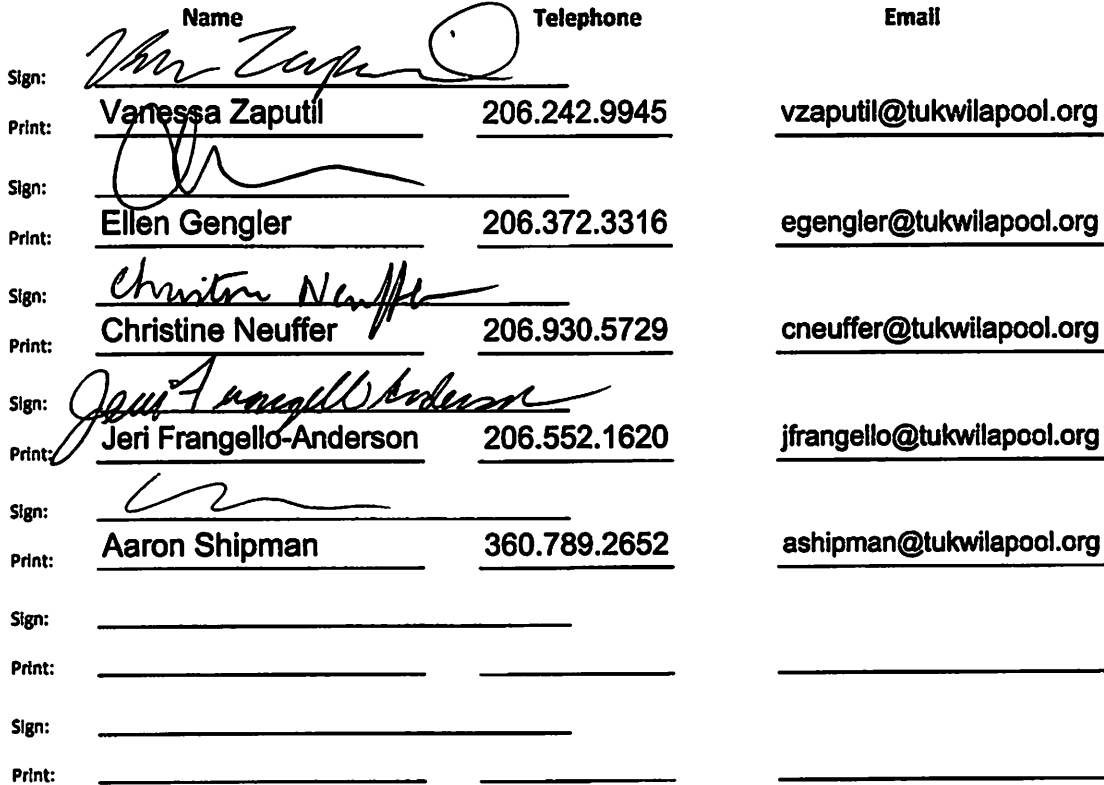 Name Telephone Email
Sign:
Print: Vanessa Zaputil 206.242.9945 vzaputil@tukwilapool.org
Sign:
Print: Ellen Gengler 206.372.3316 egengler@tukwilapool.org
Sign: Christine Neuffer
Print: Christine Neuffer 206.930.5729 cneuffer@tukwilapool.org
Sign: Jeri Frangello Anderson
Print: Jeri Frangello-Anderson 206.552.1620 jfrangello@tukwilapool.org
Sign:
Print: Aaron Shipman 360.789.2652 ashipman@tukwilapool.org
Sign:
Print:
Sign:
Print: